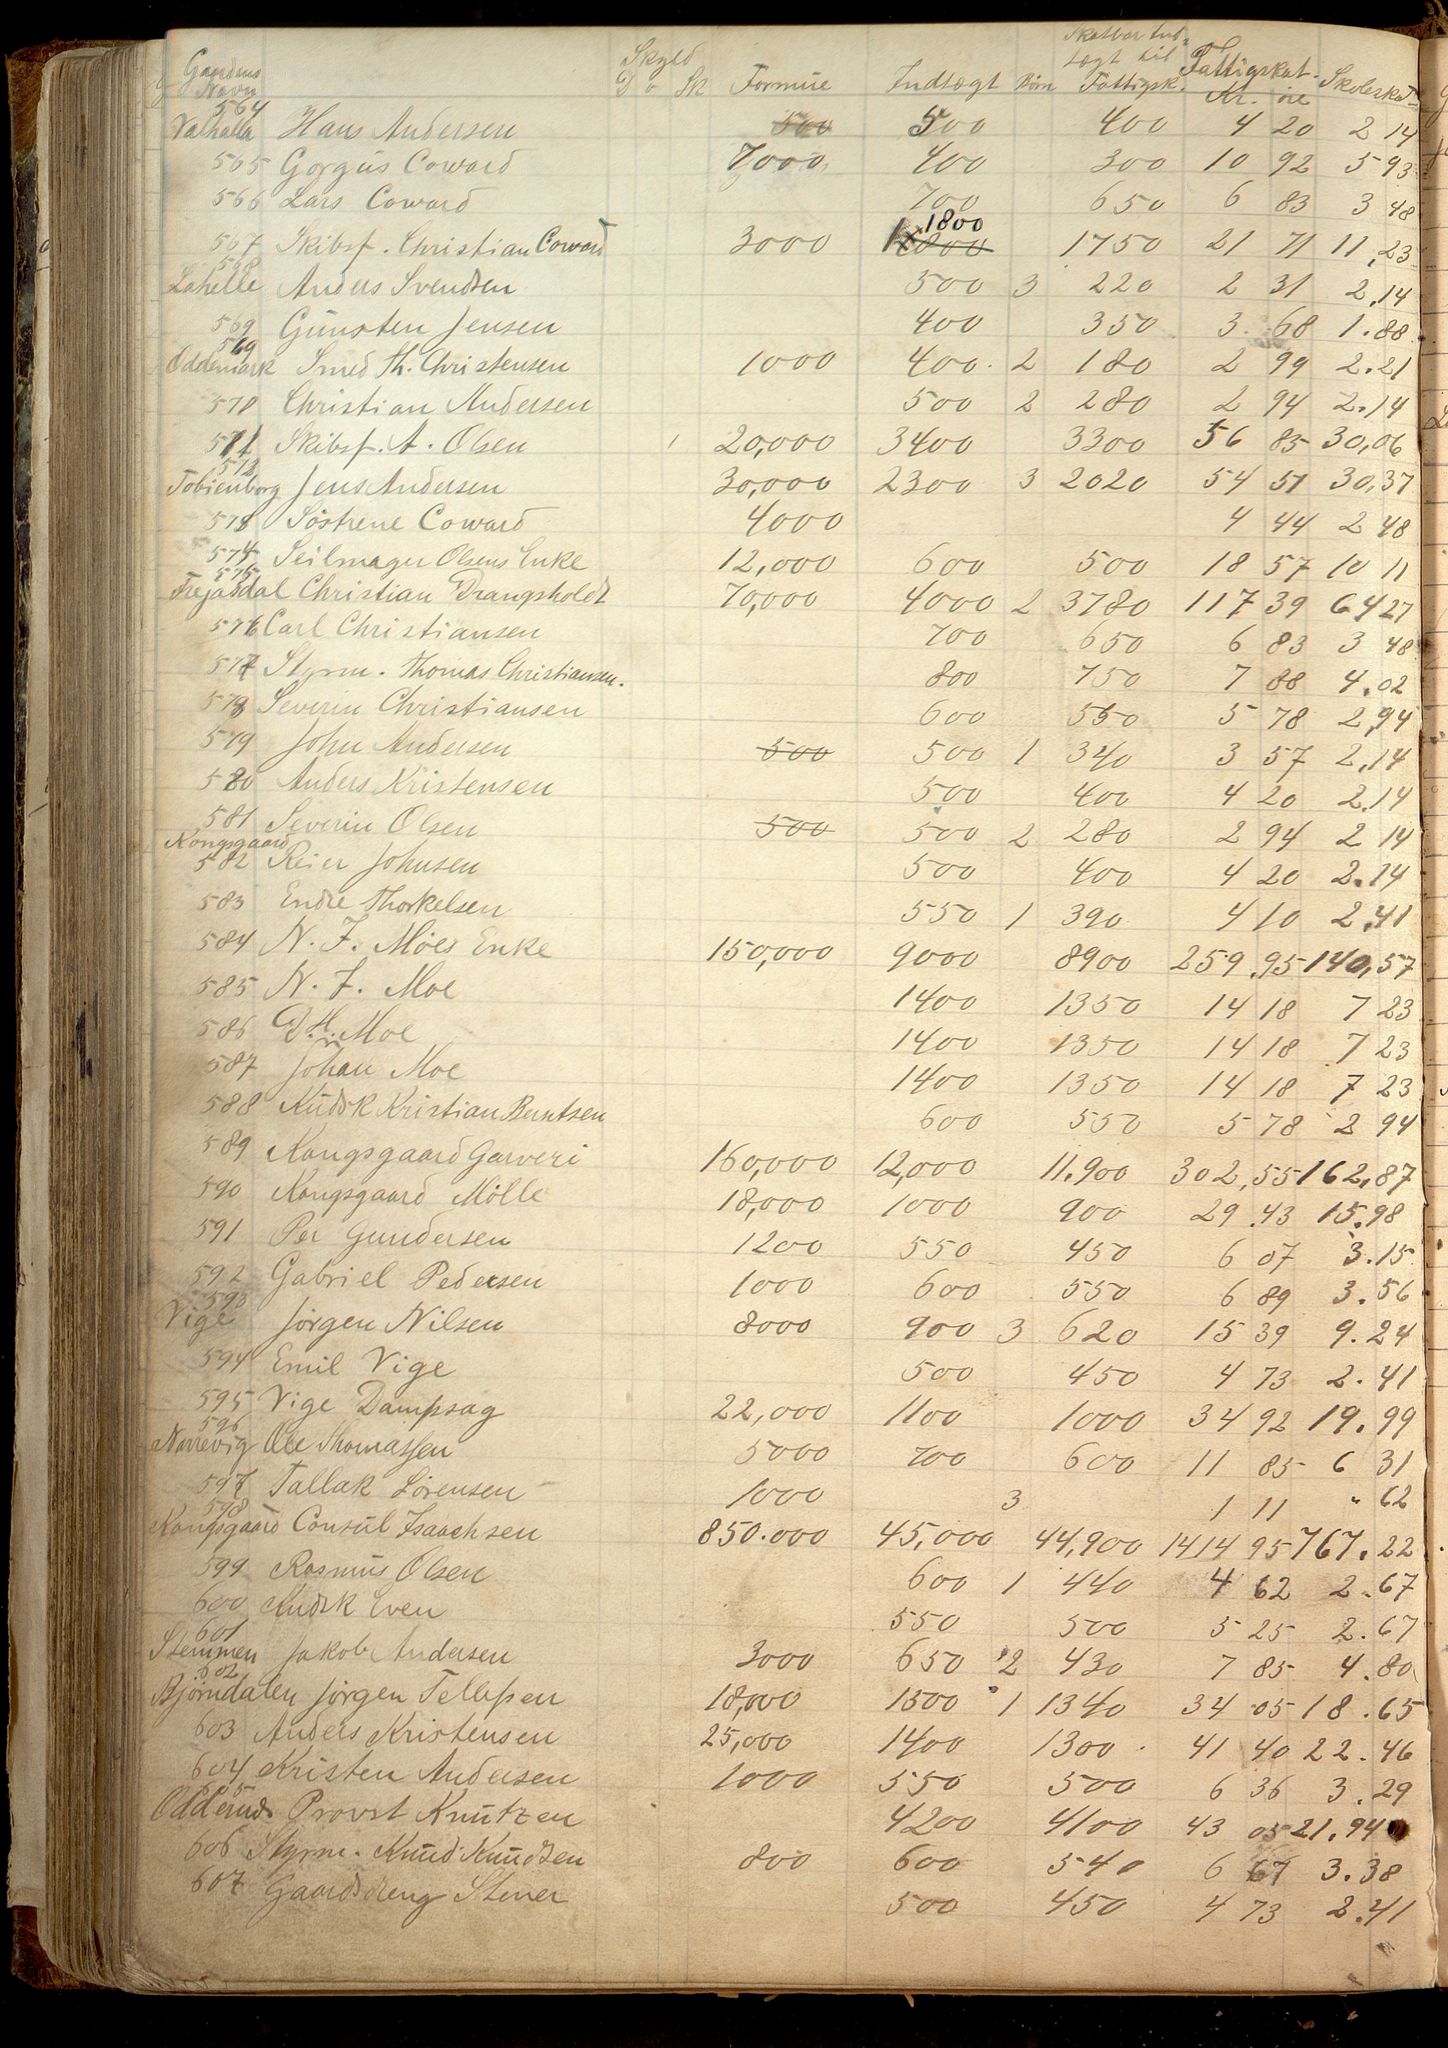 Gaardens Navn Skyld D o Sk Formue Indtægt Börn Skatbar Indtægt til Fattigsk. Fattigskat Kr. öre Skoleskat
564 Valhalla Hans Andersen 500 500 400 4 20 2 14
565 Gorgus Coward 7000 400 300 10 92 5 93
566 Lars Coward 700 650 6 83 3 48
567 Skibsf. Christian Coward 3000 1800 1750 21 71 11,23
568 Lahelle Anders Svendsen 500 3 220 2 31 2,14
569 Gunsten Jensen 400 350 3 68 1.88
569 Oddemark Smed Th. Christensen 1000 400. 2 180 2 99 2.21
570 Christian Andersen 500 2 280 2 94 2.14
571 Skibsf. A. Olsen 20,000 3400 3300 56 85 30,06
572 Tobienborg Jens Andersen 30,000 2300 3 2020 54 51 30,37
573 Söstrene Coward 4000 4 44 2 48
574 Seilmager Olsens Enke 12,000 600 500 18 57 10 11
575 Frejasdal Christian Drangsholdt 70,000 4000 2 3780 117 39 64 27
576 Carl Christiansen 700 650 6 83 3 48
577 Styrm. Thomas Christiansen. 800 750 7 88 4.02
578 Severin Christiansen 600 550 5 78 2,94
579 John Andersen 500 500 1 340 3 57 2,14
580 Anders Kristensen 500 400 4 20 2.14
581 Severin Olsen 500 500 2 280 2 94 2 14
Kongsgaard 582 Reier Johnsen 500 400 4 20 2.14
583 Endre Thorkelsen 550 1 390 4 10 2,41
584 N. F. Möes Enke 150,000 9000 8900 259.95 140,57
585 N. F. Moe 1400 1350 14 18 7 23
586 D. H. Moe 1400 1350 14 18 7 23
587 Johan Moe 1400 1350 14 18 7 23
588 Kudsk Kristian Berntsen 600 550 5 78 2 94
589 Kongsgaard Garveri 160,000 12,000 11.900 302,55 162,87
590 Kongsgaard Mölle 18,000 1000 900 29.43 15.98
591 Per Gundersen 1200 550 450 6 07 3.15
592 Gabriel Pedersen 1000 600 550 6 89 3.56
593 Vige Jörgen Nilsen 8000 900 3 620 15 39 9.24
594 Emil Vige 500 450 4 73 2.41
595 Vige Dampsag 22,000 1100 1000 34 92 19.99
596 Narrevig Ole Thomassen 5000 700 600 11 85 6 31
597 Tallak Sörensen 1000 3 1 11 " 62
598 Kongsgaard Consul Isaachsen 850.000 45,000 44,900 1414 95 767.22
599 Rasmus Olsen 600 1 440 4 62 2.67
600 Kudsk Even 550 500 5 25 2.67
601 Stemmen Jakob Andersen 3000 650 2 430 7 85 4.80
602 Bjørndalen Jørgen Tellefsen 18,000 1500 1 1340 34 05 18.65
603 Anders Kristensen 25,000 1400 1300. 41 40 22.46
604 Kristen Andersen 1000 550 500 6 36 3.29
605 Oddernes Provst Knutzen 4200 4100 43 05 21.94
606 Styrm. Knud Knudsen 800 600 540 6 67 3.38
607 Gaardsdreng Stener 500 450 4 73 2.41